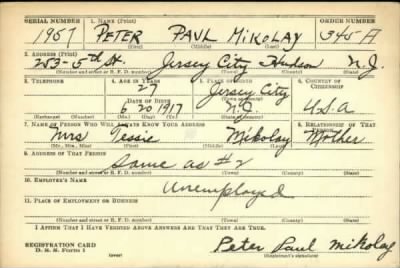 SERIAL NUMBER 1. NAME (Print) ORDER NUMBER
1957 PETER PAUL MIKOLAY 345 A
(First) (Middle) (Last)
2. ADDRESS (Print)
253-5th St. Jersey City Hudson N.J.
(Number and street or R. F. D. number) (Town) (County) (State)
3. TELEPHONE 4. AGE IN YEARS 5. PLACE OF BIRTH 6. COUNTRY OF CITIZENSHIP
27 Jersey City
DATE OF BIRTH (Town or county)
6 20 1917 N.J. U.S.A
(Exchange) (Number) (Mo.) (Day) (Yr.) (State or country)
7. NAME OF PERSON WHO WILL ALWAYS KNOW YOUR ADDRESS 8. RELATIONSHIP OF THAT PERSON
Mrs Tessie Mikolay Mother
(Mr., Mrs., Miss) (First) (Middle) (Last)
9. ADDRESS OF THAT PERSON
Same as #2
(Number and street or R. F. D. number) (Town) (County) (State)
10. EMPLOYER'S NAME
Unemployed
11. PLACE OF EMPLOYMENT OR BUSINESS
(Number and street or R. F. D. number) (Town) (County) (State)
I AFFIRM THAT I HAVE VERIFIED ABOVE ANSWERS AND THAT THEY ARE TRUE.
REGISTRATION CARD
D. S. S. Form 1 (over) Peter Paul Mikolay
(Registrant's signature)